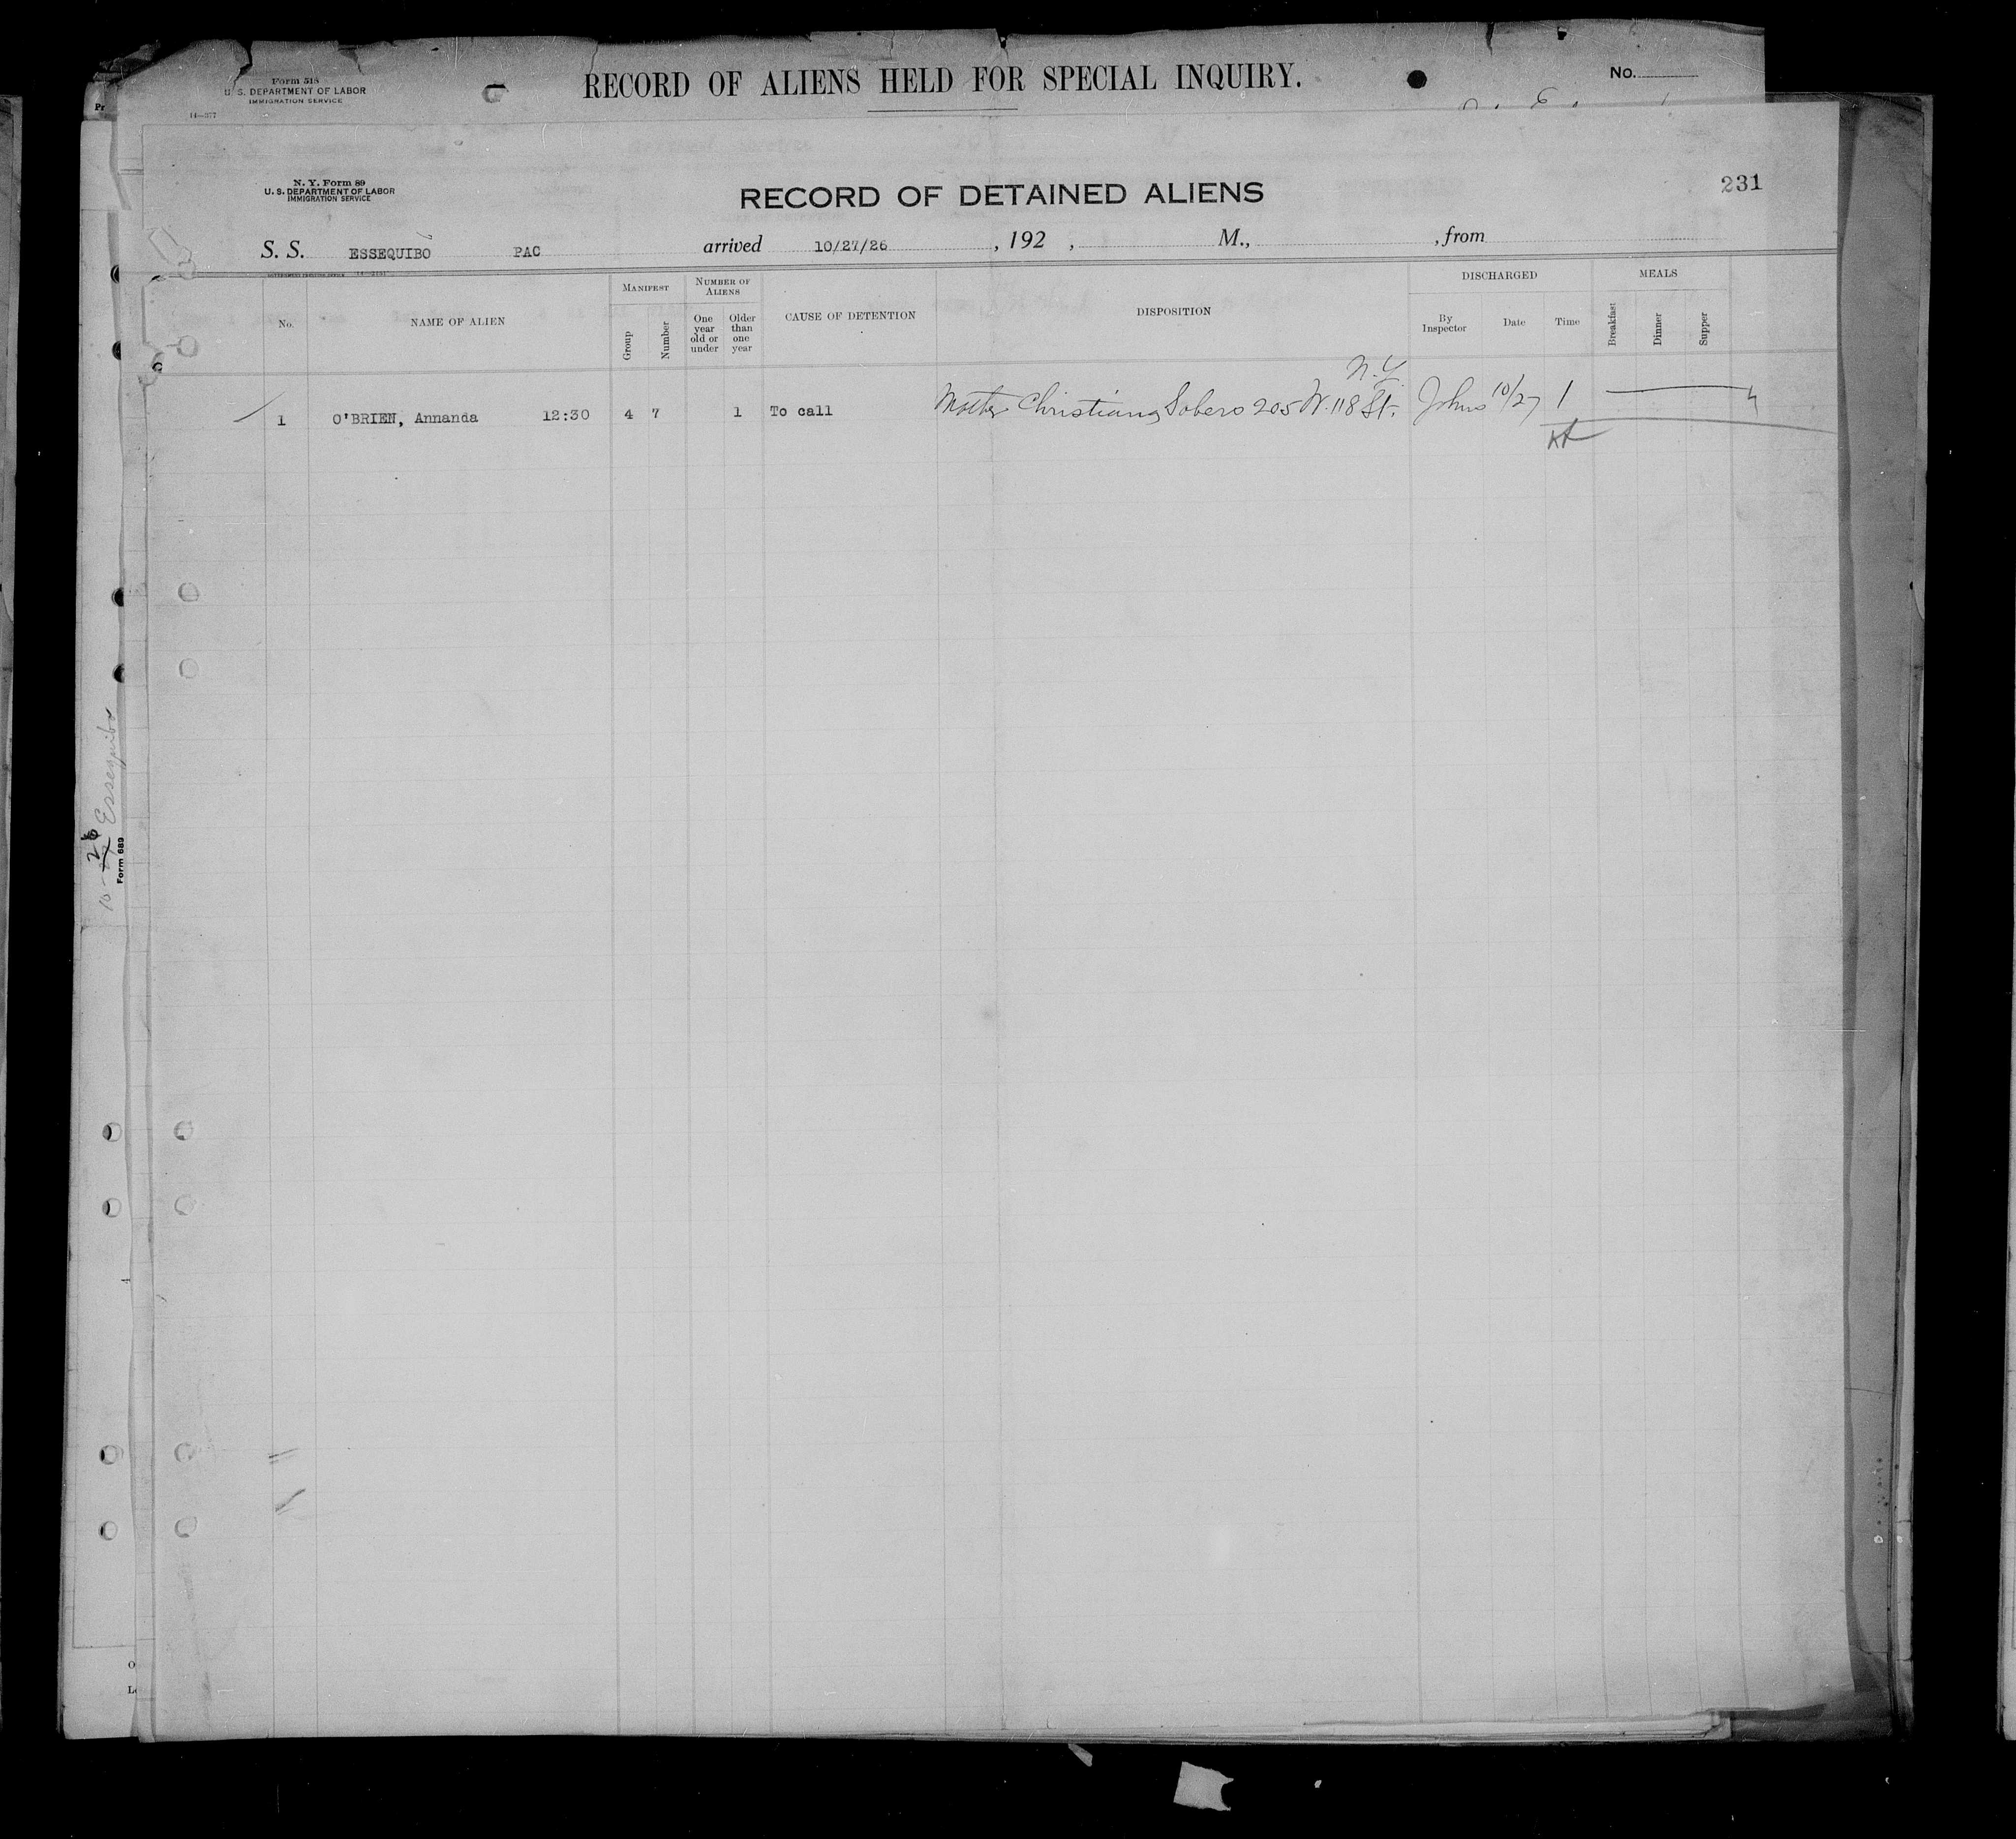 Form 518
U. S. DEPARTMENT OF LABOR
IMMIGRATION SERVICE
14—377
RECORD OF ALIENS HELD FOR SPECIAL INQUIRY.
No.
N. Y. Form 89
U. S. DEPARTMENT OF LABOR
IMMIGRATION SERVICE
RECORD OF DETAINED ALIENS
231
S. S. ESSEQUIBO PAC arrived 10/27/26 , 192 , M., , from
No. NAME OF ALIEN MANIFEST Group Number NUMBER OF ALIENS One year old or under Older than one year CAUSE OF DETENTION DISPOSITION DISCHARGED By Inspector Date Time MEALS Breakfast Dinner Supper
N.Y.
1 O'BRIEN, Annanda 12:30 4 7 1 To call Mother Christiana Sobers 205 W. 118 St. Johns 10/27 1
10- 26 Essequibo
Form 689